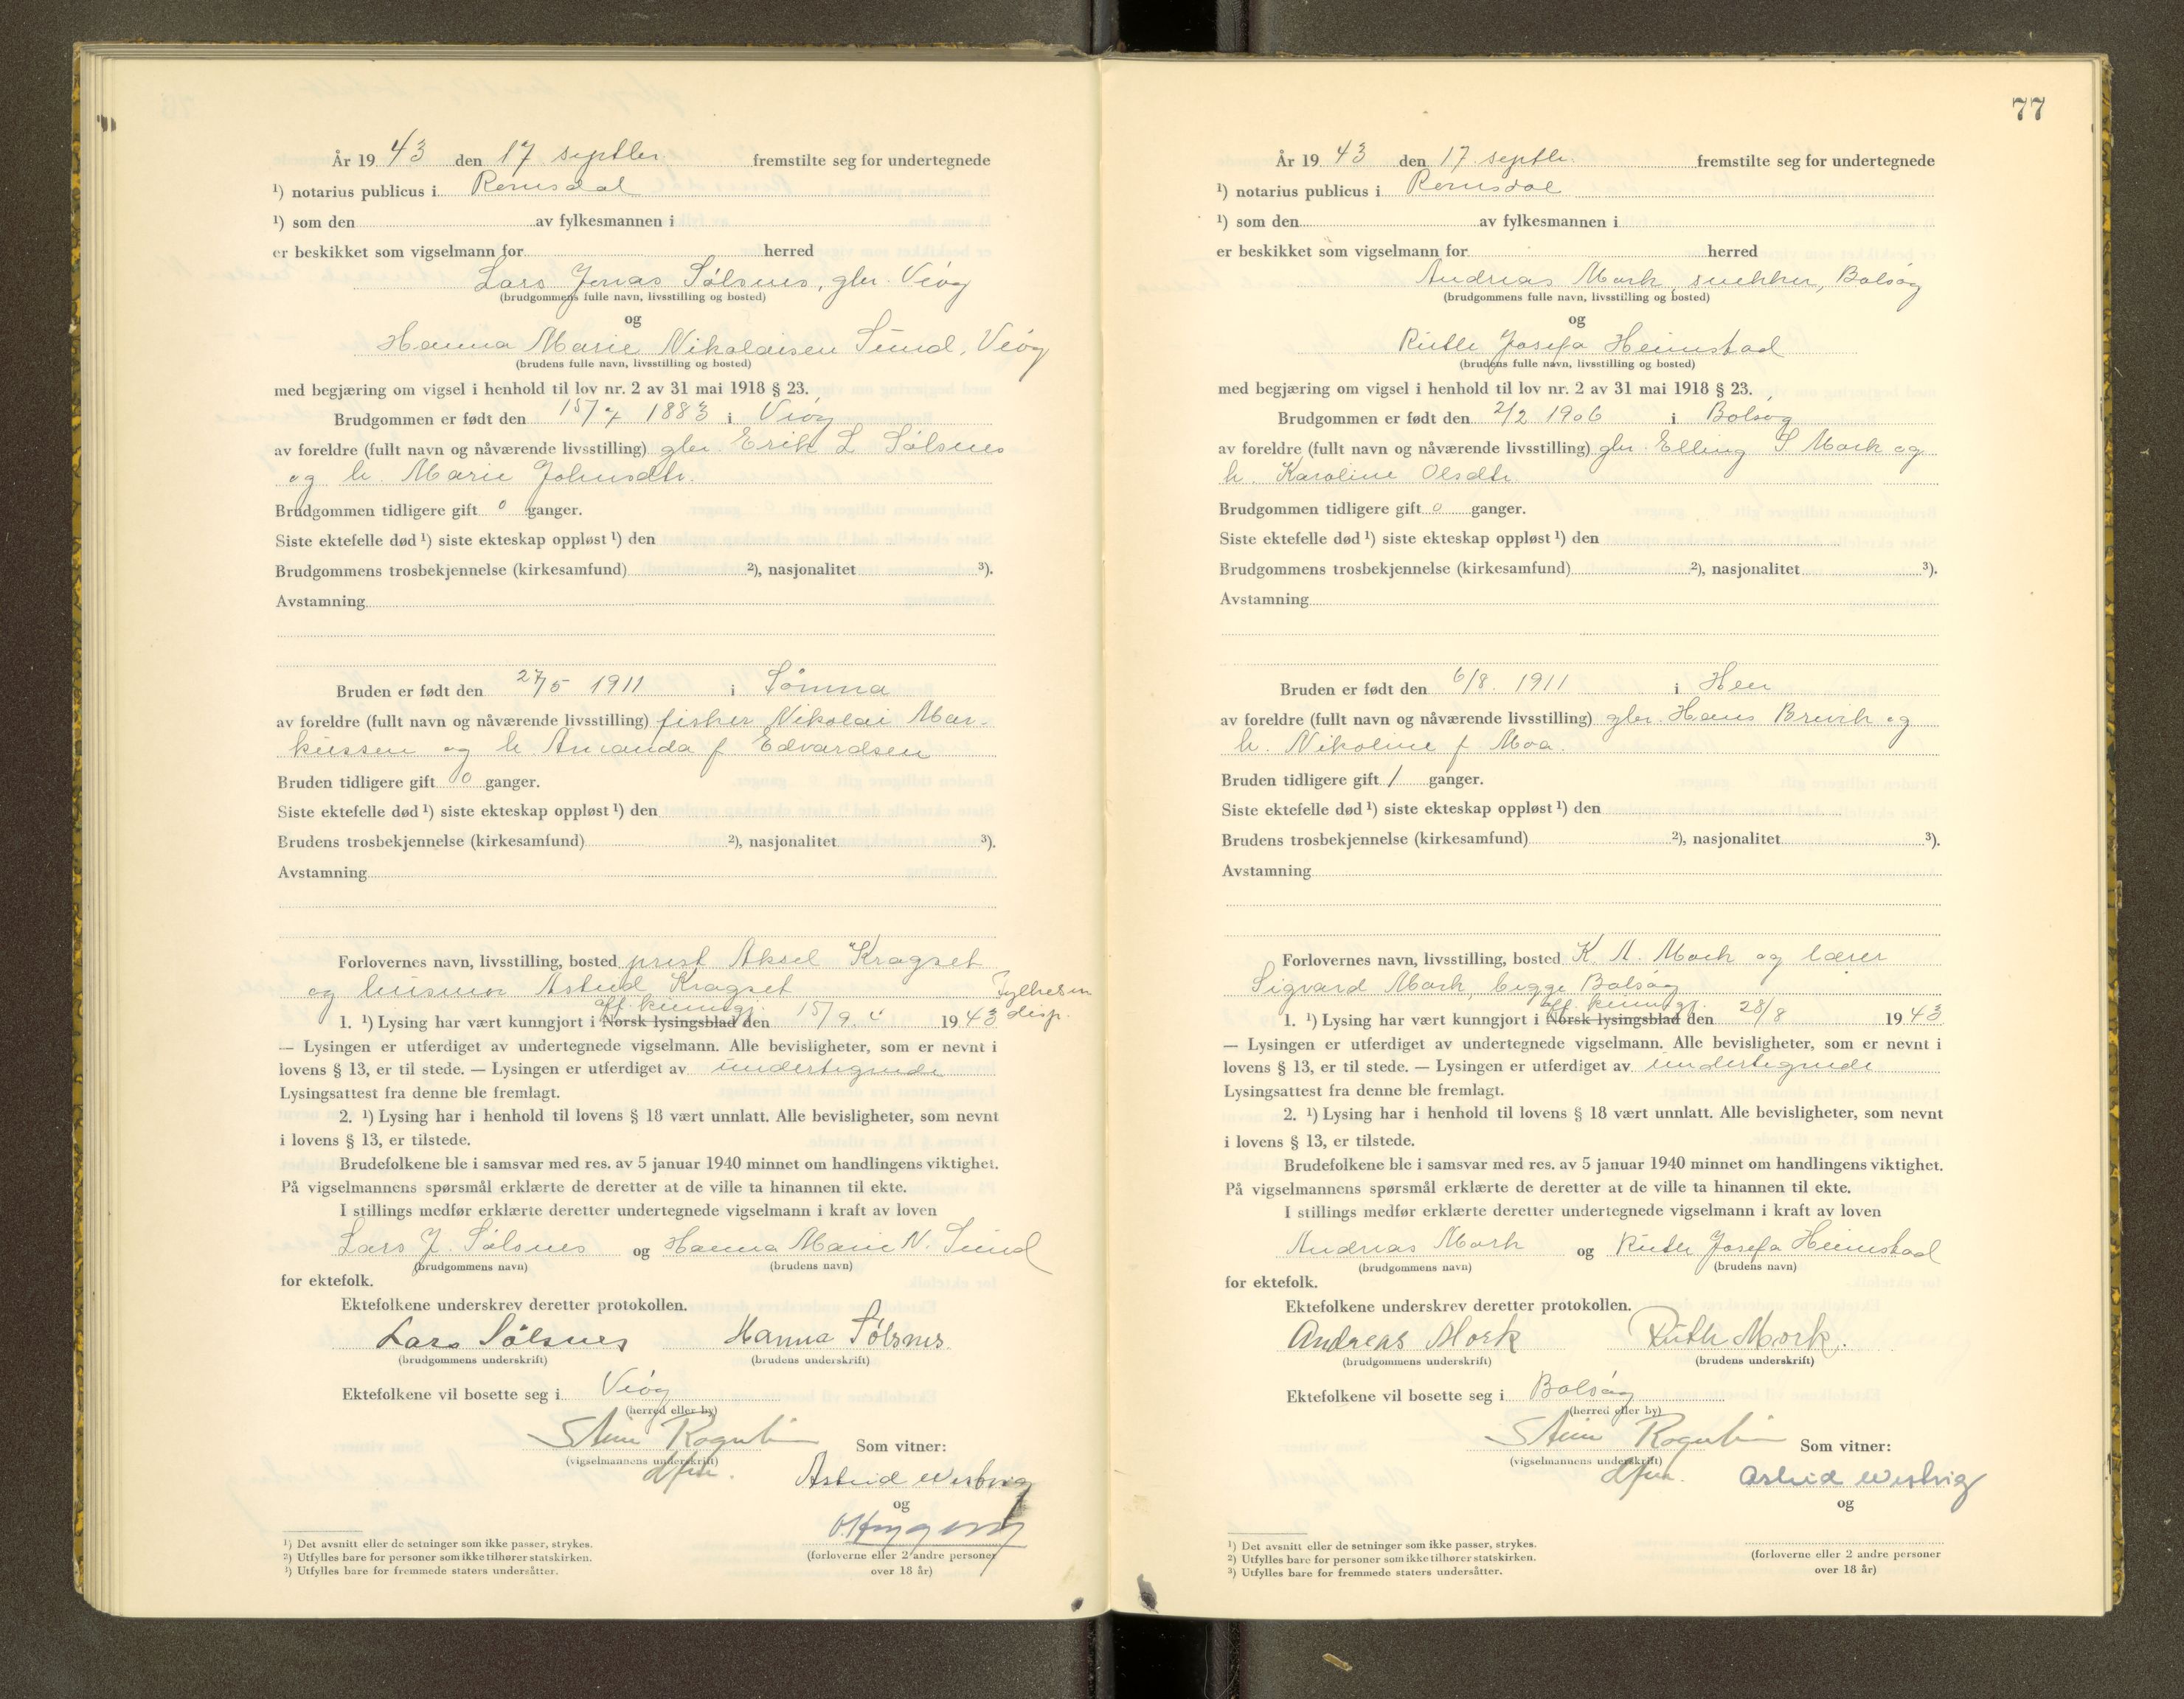 År 19 43 den 17 septbr. fremstilte seg for undertegnede
¹) notarius publicus i Romsdal
¹) som den av fylkesmannen i
er beskikket som vigselmann for herred
Lars Jonas Sølsnes, gbr. Veøy
(brudgommens fulle navn, livsstilling og bosted)
og
Hanna Marie Nikolaisen Sund, Veøy
(brudens fulle navn, livsstilling og bosted)
med begjæring om vigsel i henhold til lov nr. 2 av 31 mai 1918 § 23.
Brudgommen er født den 1883 i Veøy
av foreldre (fullt navn og nåværende livsstilling) gbr. Erik L Sølsnes
og h. Marie Johnsdtr.
Brudgommen tidligere gift 0 ganger.
Siste ektefelle død ¹) siste ekteskap oppløst ¹) den
Brudgommens trosbekjennelse (kirkesamfund) ²), nasjonalitet ³).
Avstamning
Bruden er født den 27/5 1911 i Sømna
av foreldre (fullt navn og nåværende livsstilling) fisker Nikolai Mar-
kussen og h Amanda f Edvardsen
Bruden tidligere gift 0 ganger.
Siste ektefelle død ¹) siste ekteskap oppløst ¹) den
Brudens trosbekjennelse (kirkesamfund) ²), nasjonalitet ³).
Avstamning
Forlovernes navn, livsstilling, bosted prest Aksel Kragset
og husmor Astrid Kragset
Fylkesm
off. kunngj. disp.
1. ¹) Lysing har vært kunngjort i Norsk lysingsblad den 15/9 19 43
— Lysingen er utferdiget av undertegnede vigselmann. Alle bevisligheter, som er nevnt i
lovens § 13, er til stede. — Lysingen er utferdiget av undertegnede
Lysingsattest fra denne ble fremlagt.
2. ¹) Lysing har i henhold til lovens § 18 vært unnlatt. Alle bevisligheter, som nevnt
i lovens § 13, er tilstede.
Brudefolkene ble i samsvar med res. av 5 januar 1940 minnet om handlingens viktighet.
På vigselmannens spørsmål erklærte de deretter at de ville ta hinannen til ekte.
I stillings medfør erklærte deretter undertegnede vigselmann i kraft av loven
Lars J. Sølsnes og Hanna Marie N. Sund
(brudgommens navn) (brudens navn)
for ektefolk.
Ektefolkene underskrev deretter protokollen.
Lars Sølsnes Hanna Sølsnes
(brudgommens underskrift) (brudens underskrift)
Ektefolkene vil bosette seg i Veøy
(herred eller by)
Som vitner:
(vigselmannens underskrift)
dfm.
Astrid Westvig
og
(forloverne eller 2 andre personer
over 18 år)
¹) Det avsnitt eller de setninger som ikke passer, strykes.
²) Utfylles bare for personer som ikke tilhører statskirken.
³) Utfylles bare for fremmede staters undersåtter.
77
År 19 43 den 17 septbr. fremstilte seg for undertegnede
¹) notarius publicus i Romsdal
¹) som den av fylkesmannen i
er beskikket som vigselmann for herred
Andreas Mork, snekker, Bolsøy
(brudgommens fulle navn, livsstilling og bosted)
og
Ruth Josefa Heimstad
(brudens fulle navn, livsstilling og bosted)
med begjæring om vigsel i henhold til lov nr. 2 av 31 mai 1918 § 23.
Brudgommen er født den 2/2 1906 i Bolsøy
av foreldre (fullt navn og nåværende livsstilling) gbr. Elling S Mork og
h. Karoline Olsdtr
Brudgommen tidligere gift 0 ganger.
Siste ektefelle død ¹) siste ekteskap oppløst ¹) den
Brudgommens trosbekjennelse (kirkesamfund) ²), nasjonalitet ³).
Avstamning
Bruden er født den 6/8. 1911 i Hen
av foreldre (fullt navn og nåværende livsstilling) gbr. Hans Brevik og
h. Nikoline f Moa.
Bruden tidligere gift 1 ganger.
Siste ektefelle død ¹) siste ekteskap oppløst ¹) den
Brudens trosbekjennelse (kirkesamfund) ²), nasjonalitet ³).
Avstamning
Forlovernes navn, livsstilling, bosted K. A. Mork og lærer
Sigvard Mork, begge Bolsøy
off. kunngj.
1. ¹) Lysing har vært kunngjort i Norsk lysingsblad den 28/8 19 43
— Lysingen er utferdiget av undertegnede vigselmann. Alle bevisligheter, som er nevnt i
lovens § 13, er til stede. — Lysingen er utferdiget av undertegnede
Lysingsattest fra denne ble fremlagt.
2. ¹) Lysing har i henhold til lovens § 18 vært unnlatt. Alle bevisligheter, som nevnt
i lovens § 13, er tilstede.
Brudefolkene ble i samsvar med res. av 5 januar 1940 minnet om handlingens viktighet.
På vigselmannens spørsmål erklærte de deretter at de ville ta hinannen til ekte.
I stillings medfør erklærte deretter undertegnede vigselmann i kraft av loven
Andreas Mork og Ruth Josefa Heimstad
(brudgommens navn) (brudens navn)
for ektefolk.
Ektefolkene underskrev deretter protokollen.
Andreas Mork Ruth Mork.
(brudgommens underskrift) (brudens underskrift)
Ektefolkene vil bosette seg i Bolsøy
(herred eller by)
Som vitner:
(vigselmannens underskrift)
dfm.
Astrid Westvig
og
(forloverne eller 2 andre personer
over 18 år)
¹) Det avsnitt eller de setninger som ikke passer, strykes.
²) Utfylles bare for personer som ikke tilhører statskirken.
³) Utfylles bare for fremmede staters undersåtter.